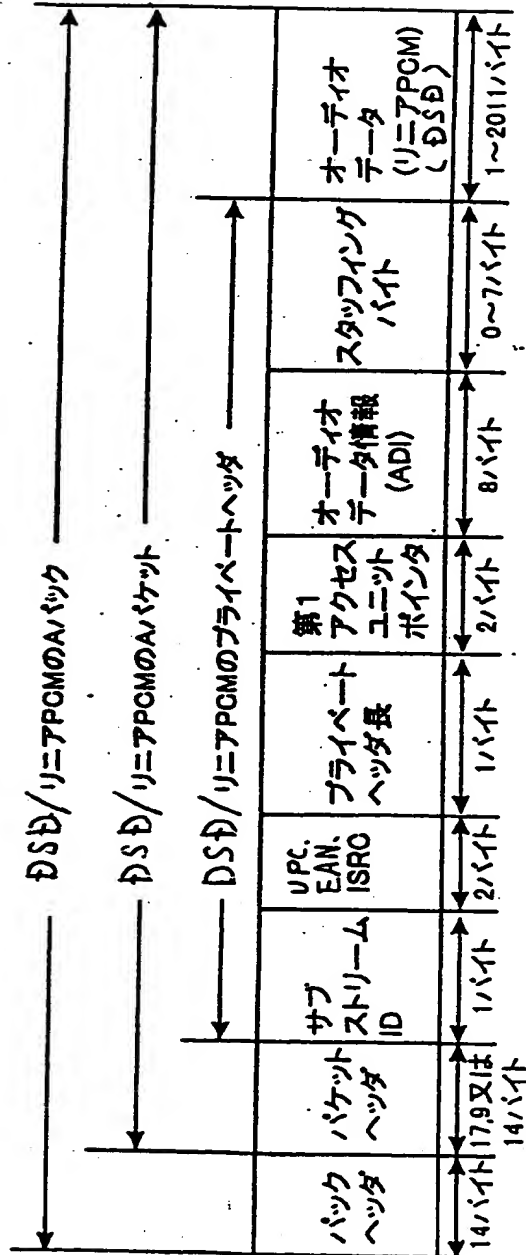 DSD/リニアPCMのAパック
DSD/リニアPCMのAパケット
DSD/リニアPCMのプライベートヘッダ
パック
ヘッダ
パケット
ヘッダ
サブ
ストリーム
ID
UPC.
EAN.
ISRC
プライベート
ヘッダ長
第1
アクセス
ユニット
ポインタ
オーディオ
データ情報
(ADI)
スタッフィング
バイト
オーディオ
データ
(リニアPCM)
(DSD)
14バイト
17,9又は
14バイト
1バイト
2バイト
1バイト
2バイト
8バイト
0~7バイト
1~2011バイト